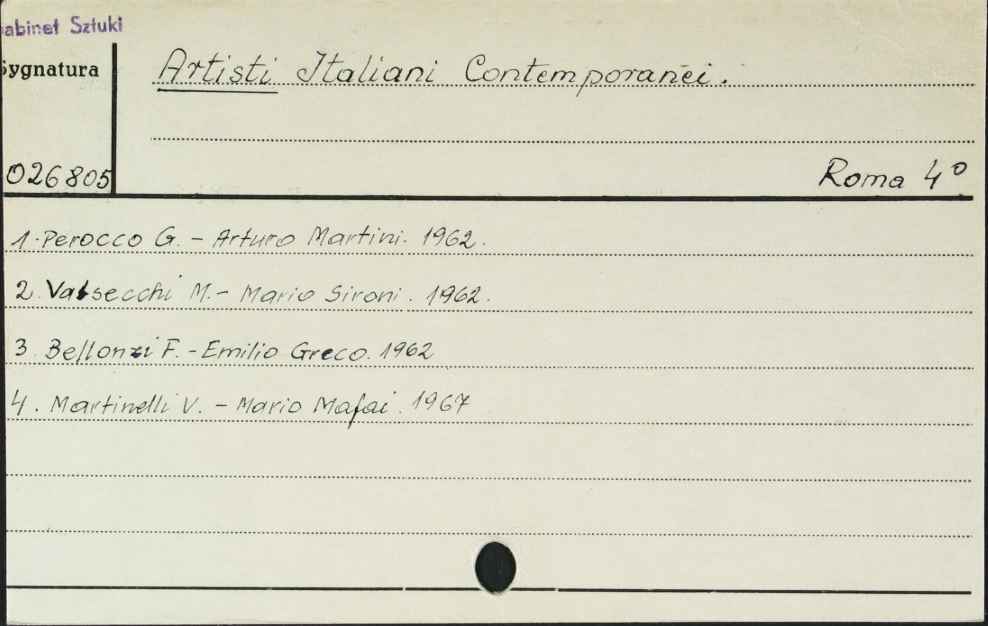 abinet Sztuki
Sygnatura
Artisti Italiani Contemporanei.
026805
Roma 4°
1. Perocco G. - Arturo Martini. 1962.
2. Valsecchi M. - Mario Sironi. 1962.
3. Bellonzi F. - Emilio Greco. 1962
4. Martinelli V. - Mario Mafai. 1967